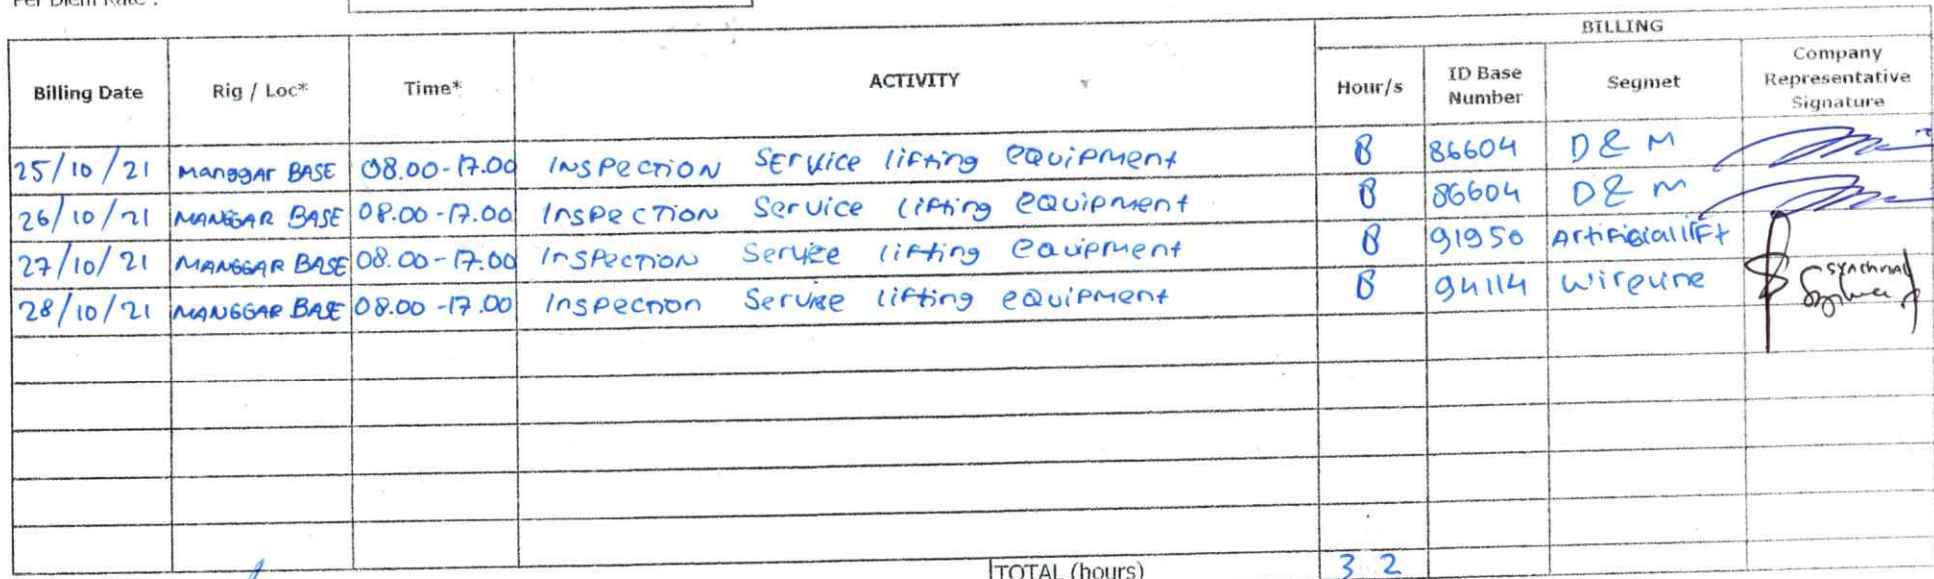 Per Diem Rate :
BILLING
Billing Date Rig / Loc* Time* ACTIVITY Hour/s ID Base Number Segmet Company Representative Signature
25/10/21 Manggar BASE 08.00-17.00 INSPECTION SERVICE lifting equipment 8 86604 D & M
26/10/21 MANGGAR BASE 08.00-17.00 INSPECTION Service lifting equipment 8 86604 D & M
27/10/21 MANGGAR BASE 08.00-17.00 INSPECTION Service lifting equipment 8 91950 Artificial lift
28/10/21 MANGGAR BASE 08.00-17.00 Inspection Service lifting equipment 8 94114 Wireline
TOTAL (hours) 32